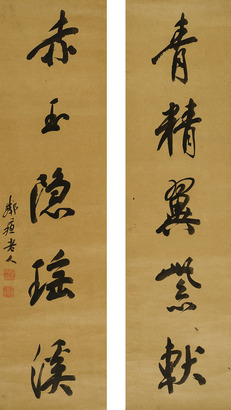 青精翼紫軑
赤玉隐瑶溪
老人